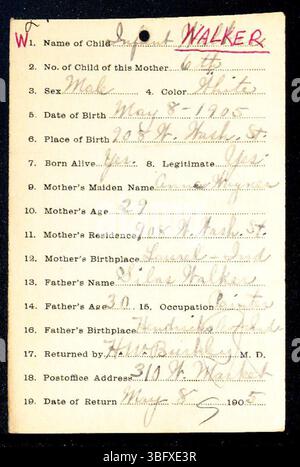 W2
1. Name of Child Infant WALKER
2. No. of Child of this Mother 6th
3. Sex Male 4. Color White
5. Date of Birth May 8 - 1905
6. Place of Birth 908 W. Wash. St.
7. Born Alive? Yes. 8. Legitimate Yes.
9. Mother's Maiden Name Anna
10. Mother's Age 29
11. Mother's Residence 908 W. Wash. St.
12. Mother's Birthplace Ind
13. Father's Name Silas Walker
14. Father's Age 30 15. Occupation
16. Father's Birthplace Hendricks Ind
17. Returned by H. W. M. D.
18. Postoffice Address 310 W. Market
19. Date of Return May 8 1905